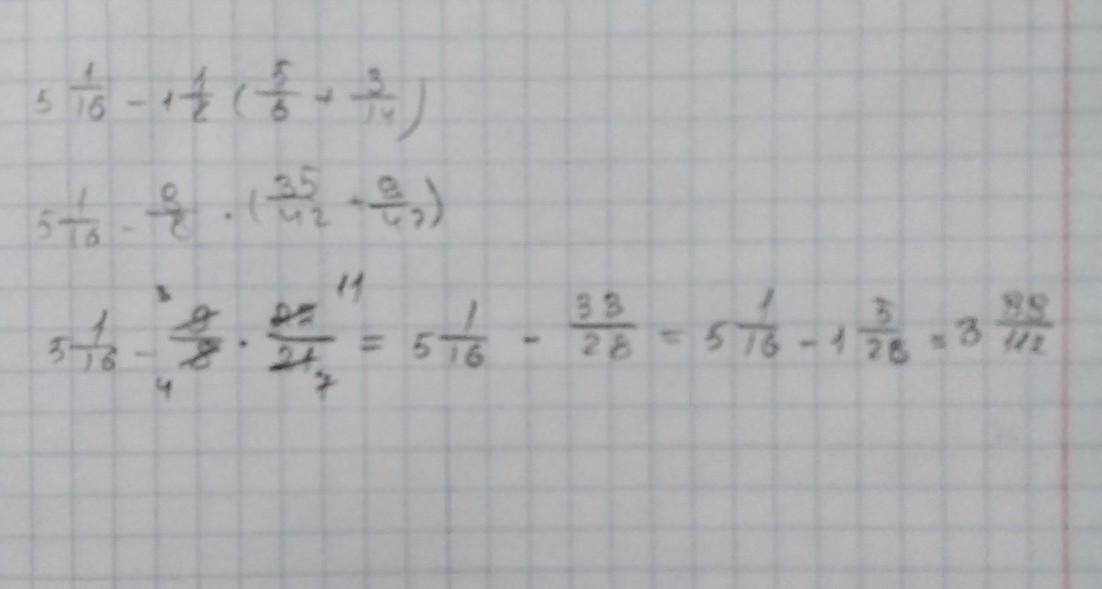 5 1/16 - 1 1/8 ( 5/6 + 3/14 )
5 1/16 - 9/8 · ( 35/42 + 9/42 )
5 1/16 - 9/8 · 22/21 = 5 1/16 - 33/28 = 5 1/16 - 1 5/28 = 3 99/112